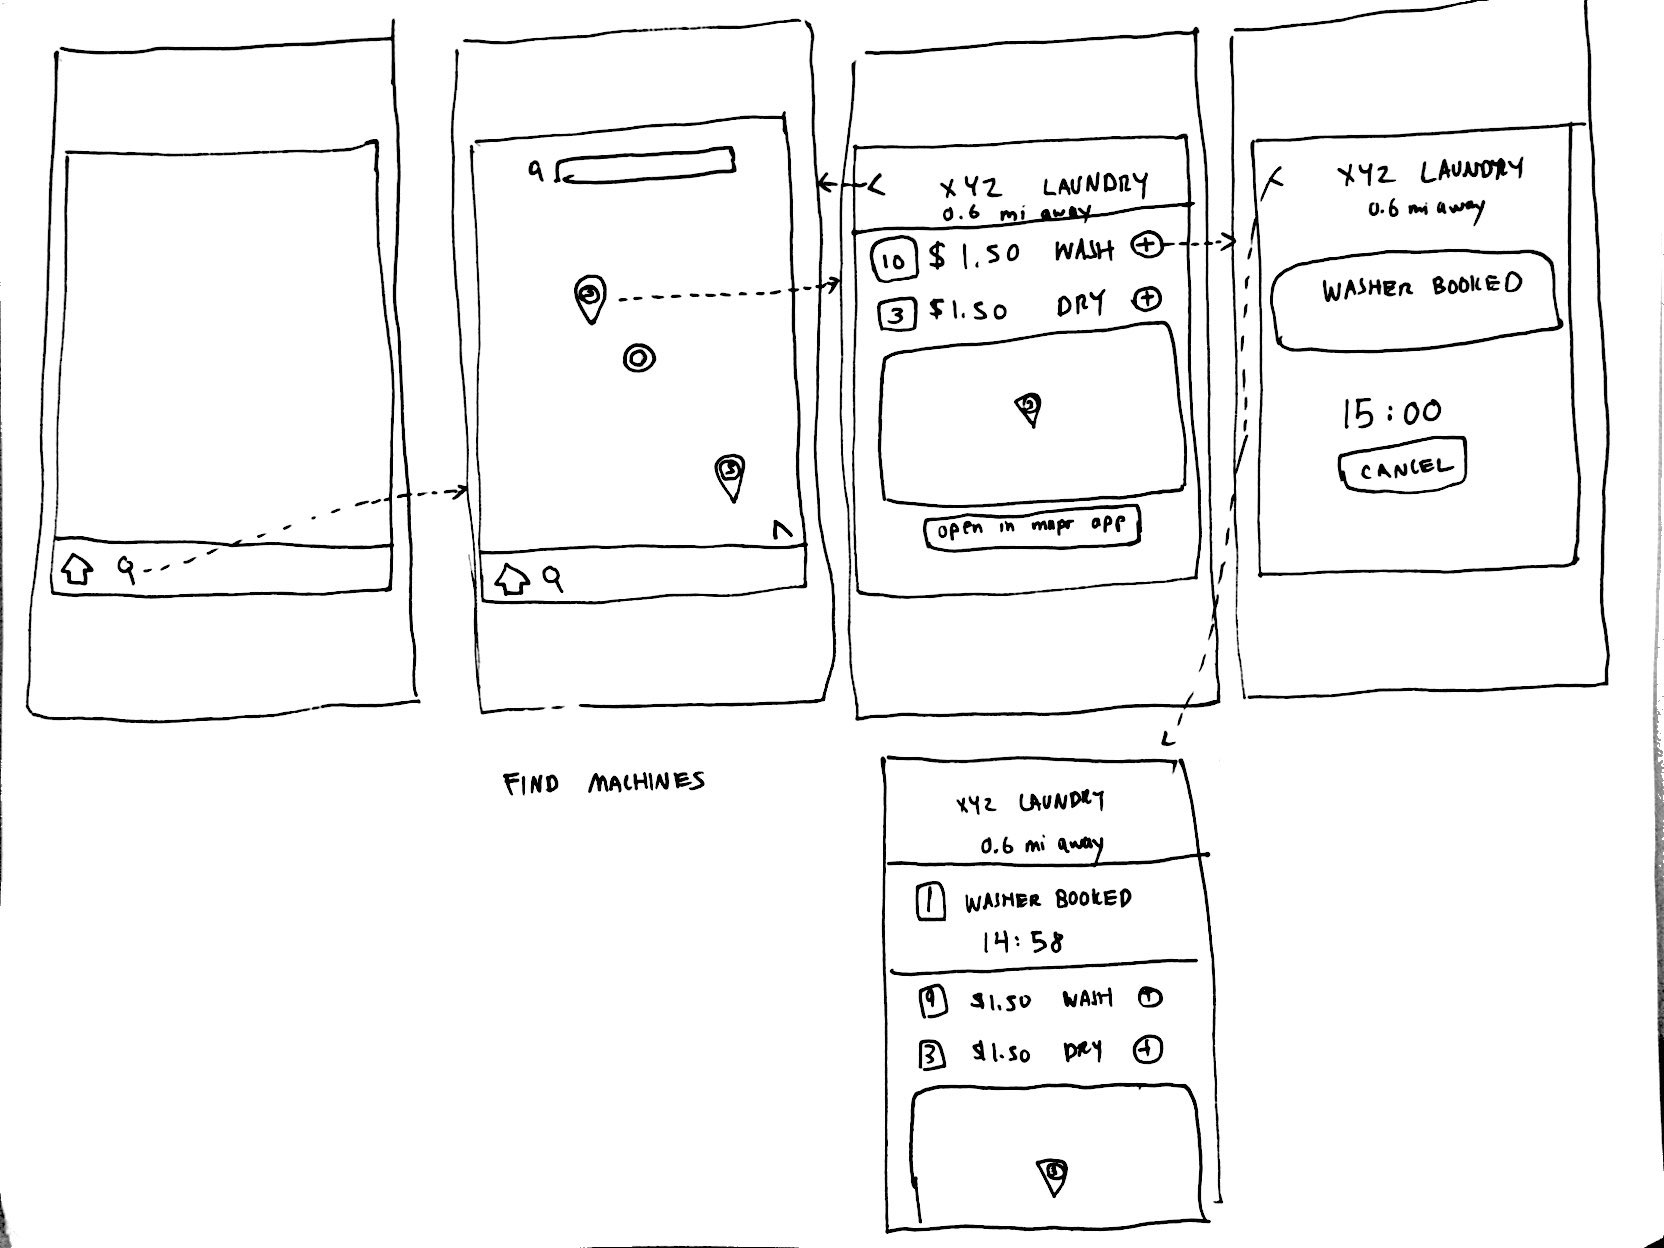 XYZ LAUNDRY
0.6 mi away
10 $1.50 WASH +
3 $1.50 DRY +
open in mapr app
XYZ LAUNDRY
0.6 mi away
WASHER BOOKED
15:00
CANCEL
FIND MACHINES
XYZ LAUNDRY
0.6 mi away
1 WASHER BOOKED
14:58
9 $1.50 WASH +
3 $1.50 DRY +